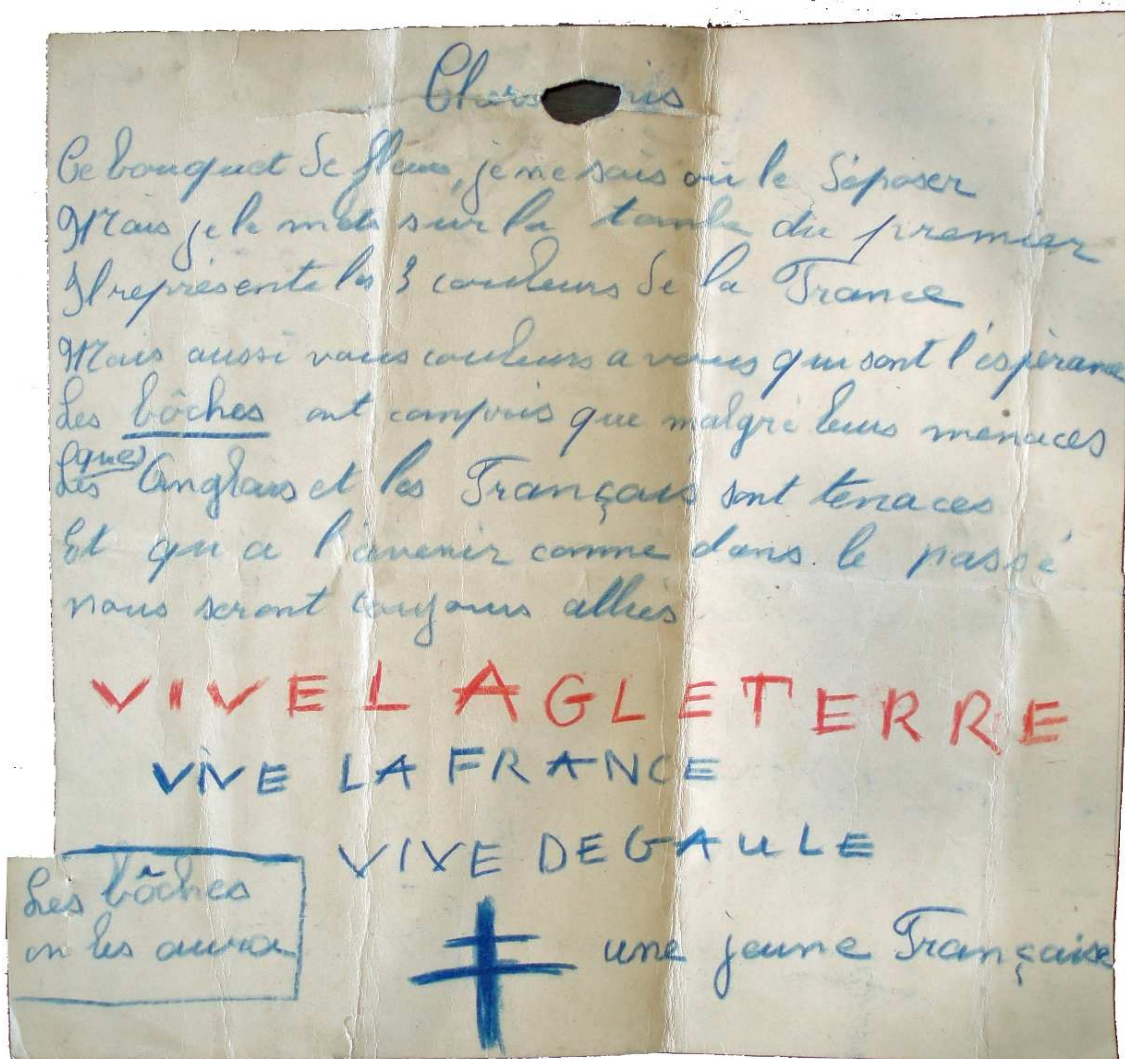 Chers
Ce bouquet de fleurs, je ne sais où le déposer
Mais je le mets sur la tombe du premier
Il représente les 3 couleurs de la France
Mais aussi vous couleurs a vous qui sont l'espérance
Les bôches ont compris que malgré leurs menaces
(que)
Les Anglais et les Français sont tenaces
Et qu a l'avenir comme dans le passé
nous seront toujours alliés
VIVE L AGLETERRE
VIVE LA FRANCE
VIVE DEGAULE
Les bôches
on les aura
une jeune Française